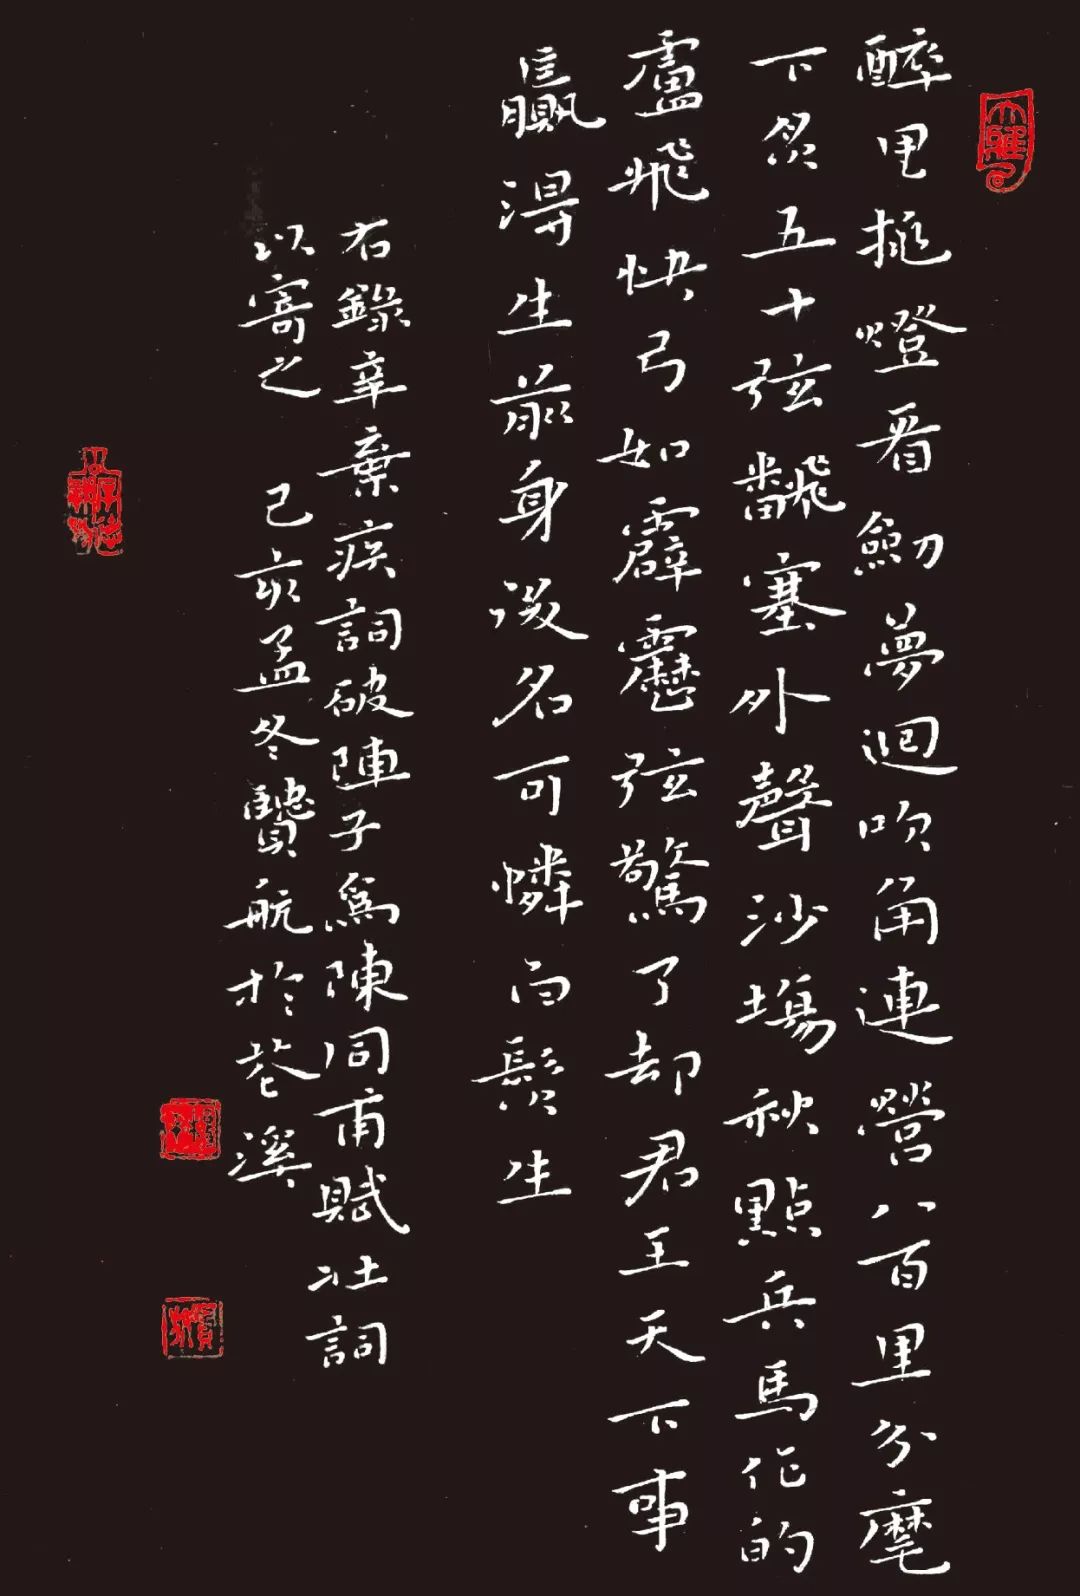 醉里挑燈看劍夢迴吹角連營八百里分麾
下炙五十弦飜塞外聲沙場秋點兵馬作的
盧飛快弓如霹靂弦驚了却君王天下事
贏得生前身後名可憐白髮生
右錄辛棄疾詞破陣子爲陳同甫賦壯詞
以寄之 己亥孟冬贇航於苍溪